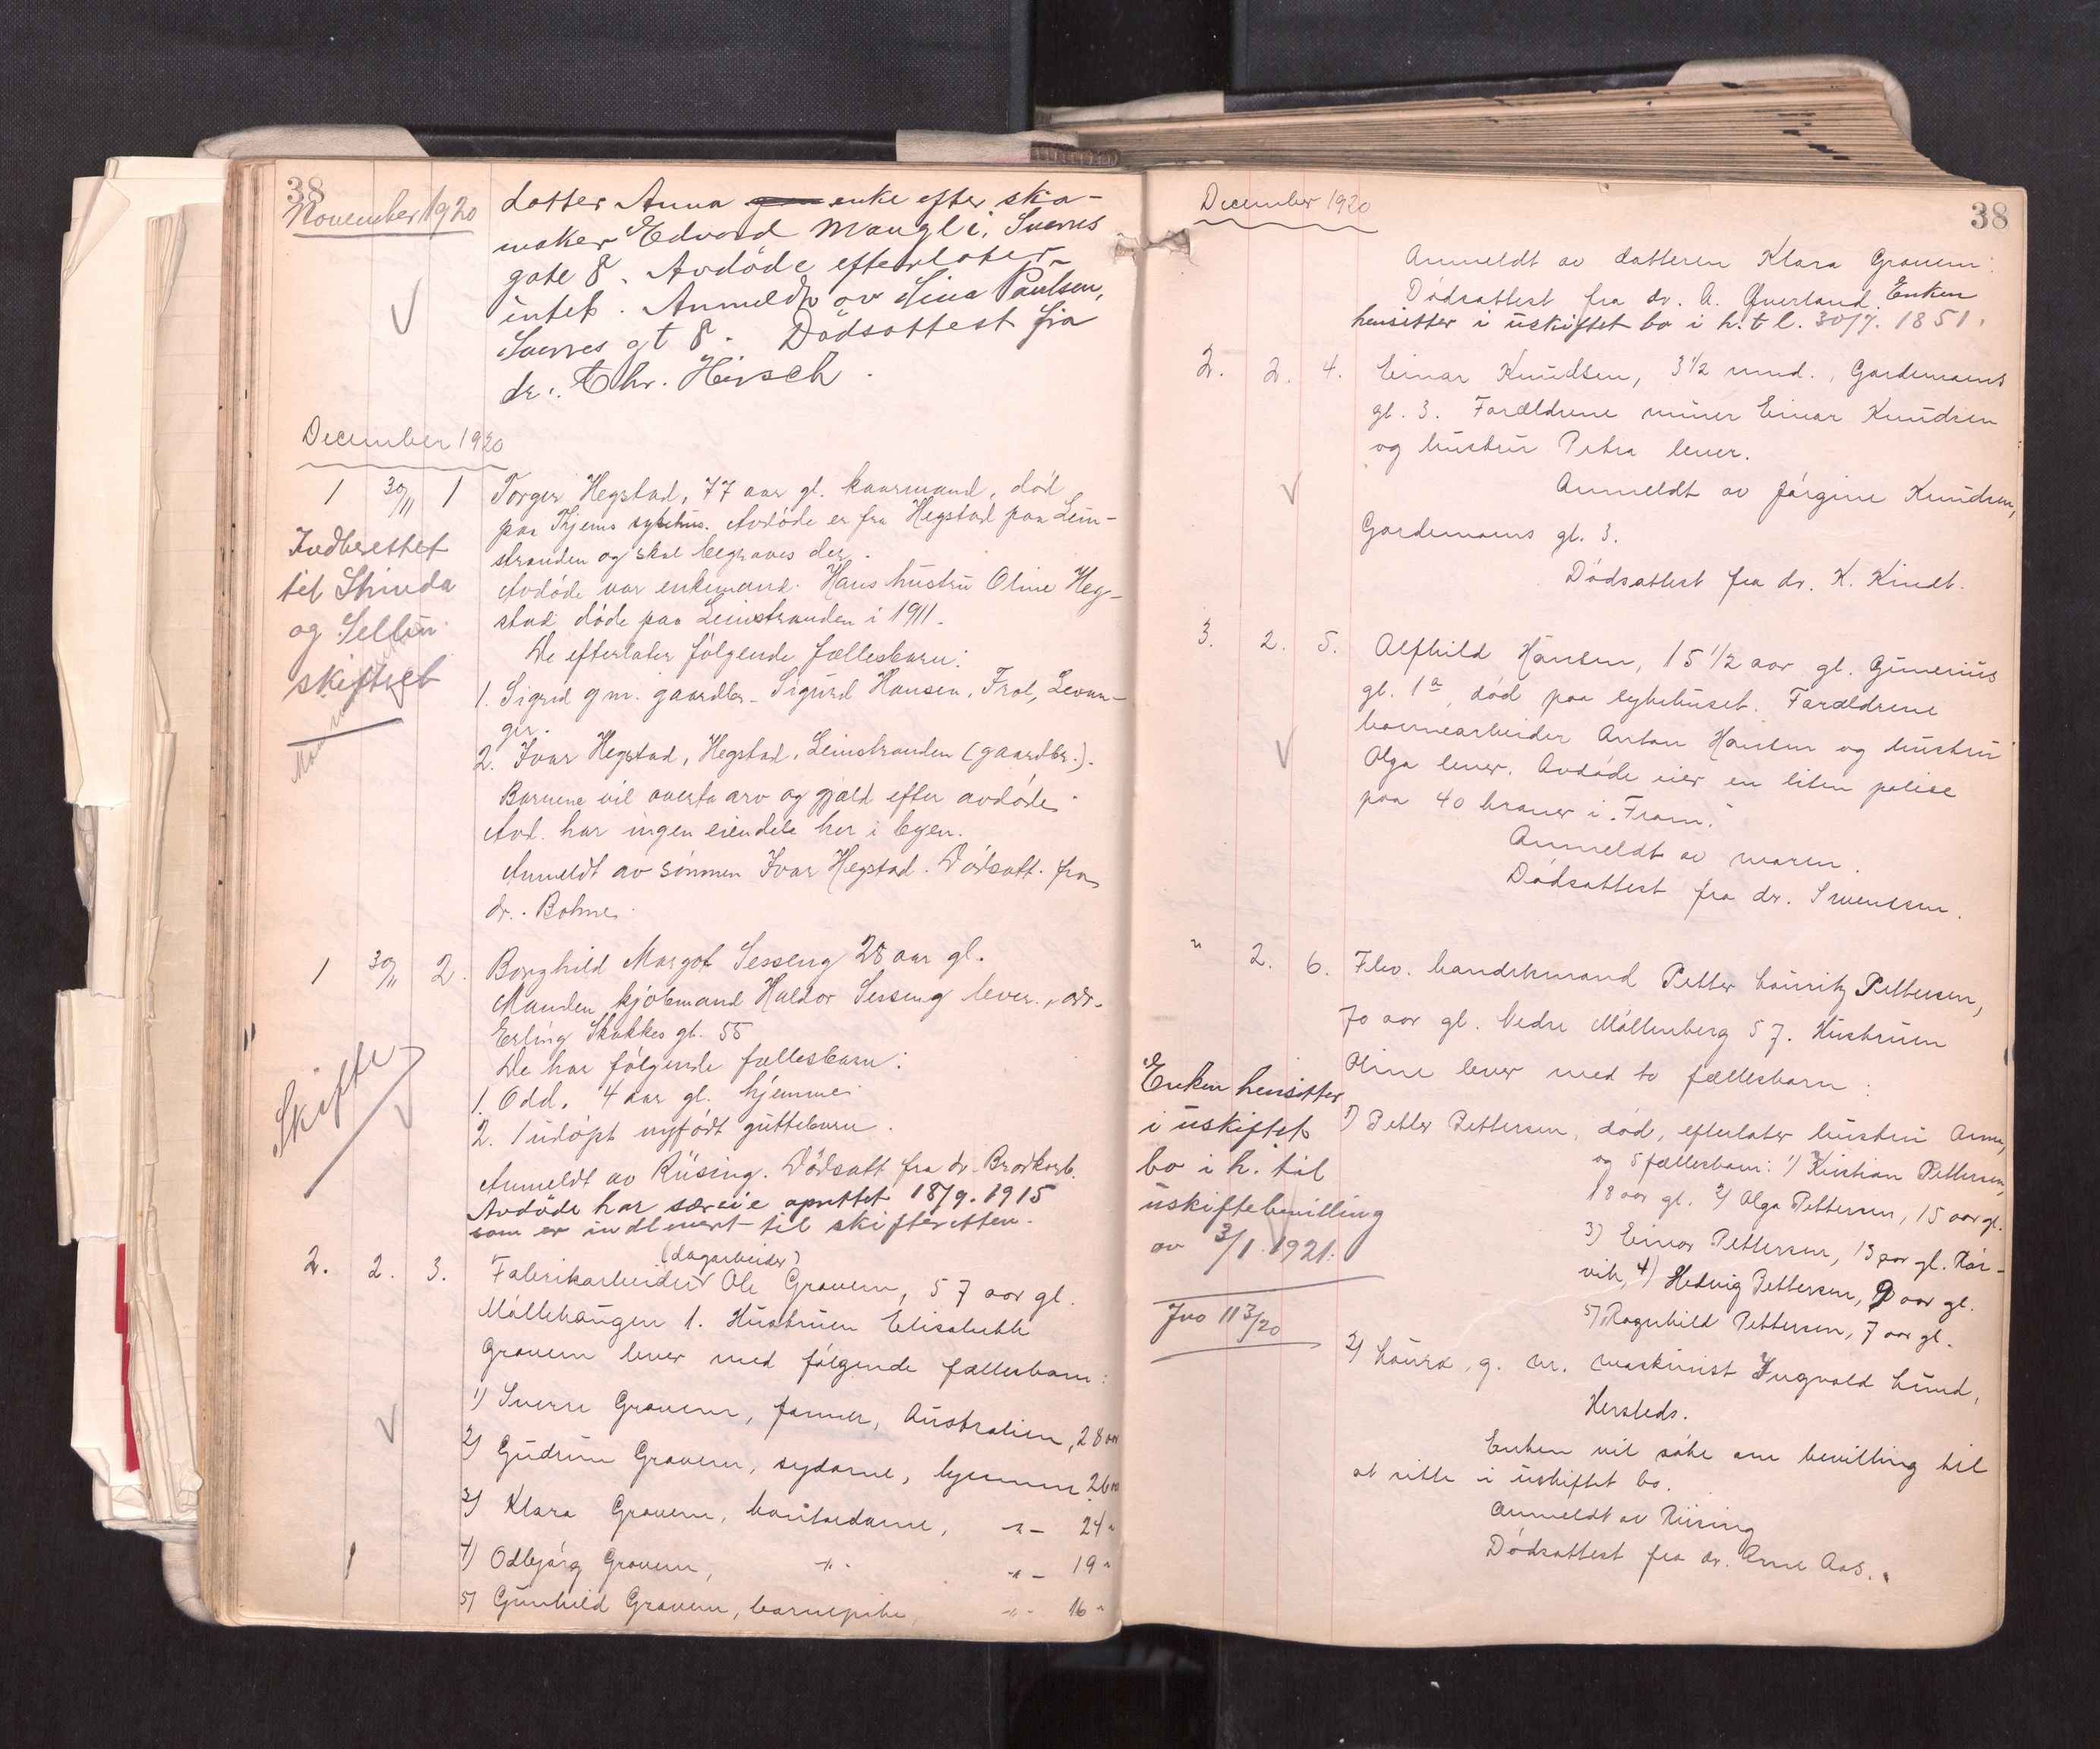 38
November 1920
datter Anna enke efter sko-
maker Edvard Mangli, Sverres
gate 8. Avdöde efterlater
intet. Anmeldt av Lina Paulsen,
Sverres gt 8. Dödsattest fra
dr. Chr. Hirsch.
December 1920
1 30/11 1 Torger Hegstad, 77 aar gl. kaarmand, död
paa Thjems sykehus. Avdöde er fra Hegstad paa Lein-
stranden og skal begraves der.
Indberettet
til Strinda
og Selbu
skifteret
Avdöde var enkemand. Hans hustru Oline Heg-
stad döde paa Leinstranden i 1911.
De efterlater fölgende fællesbarn:
1. Sigrid g m. gaardbr. Sigurd Hansen, Frol, Levan-
ger.
2. Ivar Hegstad, Hegstad, Leinstranden (gaardbr.).
Barnene vil overta arv og gjæld efter avdöde.
Avd. har ingen eiendele her i byen.
Anmeldt av sönnen Ivar Hegstad. Dödsatt. fra
dr. Bohne.
1 30/11 2. Borghild Margot Sesseng 28 aar gl.
Manden, kjöbmand Haldor Sesseng lever, adr.
Erling Skakkes gt. 55
De har fölgende fællesbarn:
1. Odd, 4 aar gl. hjemme
2. 1 udöpt nyfödt guttebarn.
Skifte
Anmeldt av Riising. Dödsatt fra dr. Brodkorb.
Avdöde har særeie oprettet 18/9. 1915
som er indlevert til skifteretten.
2. 2. 3. Fabrikarbeider (dagarbeider) Ole Gravem, 57 aar gl.
Möllehaugen 1. Hustruen Elisabeth
Gravem lever med fölgende fællesbarn:
1) Sverre Gravem, farmer, Australien, 28 aar
2) Gudrun Gravem, sydame, hjemme 26 aar
3) Klara Gravem, kontordame, -"- 24 "
4) Odbjörg Gravem, -"- -"- 19 "
5) Gunhild Gravem, barnepike, -"- 16 "
December 1920
38
Anmeldt av datteren Klara Gravem.
Dödsattest fra dr. A. Qverland. Enken
hensitter i uskiftet bo i h. t l. 30/7. 1851.
2. 2. 4. Einar Knudsen, 3 1/2 mnd., Gardemoens
gt. 3. Forældrene murer Einar Knudsen
og hustru Petra lever.
Anmeldt av Jörgine Knudsen,
Gardemoens gt. 3.
Dödsattest fra dr. K. Kindt.
3. 2. 5. Alfhild Hansen, 15 1/2 aar gl. Gunerius
gt. 1a, död paa sykehuset. Forældrene
havnearbeider Anton Hansen og hustru
Olga lever. Avdöde eier en liten polise
paa 40 kroner i "Fram."
Anmeldt av moren.
Dödsattest fra dr. Swensen.
" 2. 6. Fhv. handelsmand Petter Lauritz Pettersen,
70 aar gl. Nedre Möllenberg 57. Hustruen
Oline lever med to fællesbarn:
Enken hensitter
i uskiftet
bo i h. til
uskiftebevilling
av 3/1 1921.
Jno 113/20
1) Petter Pettersen, död, efterlater hustru Anna,
og 5 fællesbarn: 1) Kristian Pettersen,
18 aar gl. 2) Olga Pettersen, 15 aar gl.
3) Einar Pettersen, 13 aar gl. Rör-
vik, 4) Hedvig Pettersen, 9 aar gl.
5) Ragnhild Pettersen, 7 aar gl.
2) Laura, g. m. maskinist Ingvald Lund,
Hersteds.
Enken vil söke om bevilling til
at sitte i uskiftet bo.
Anmeldt av Riising
Dödsattest fra dr. Arne Aas.